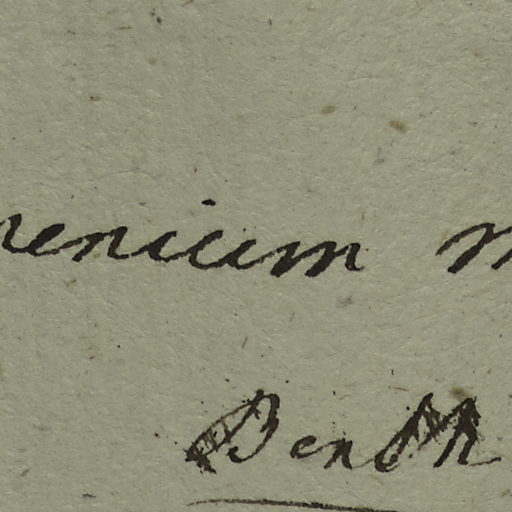 renicum m
Benth